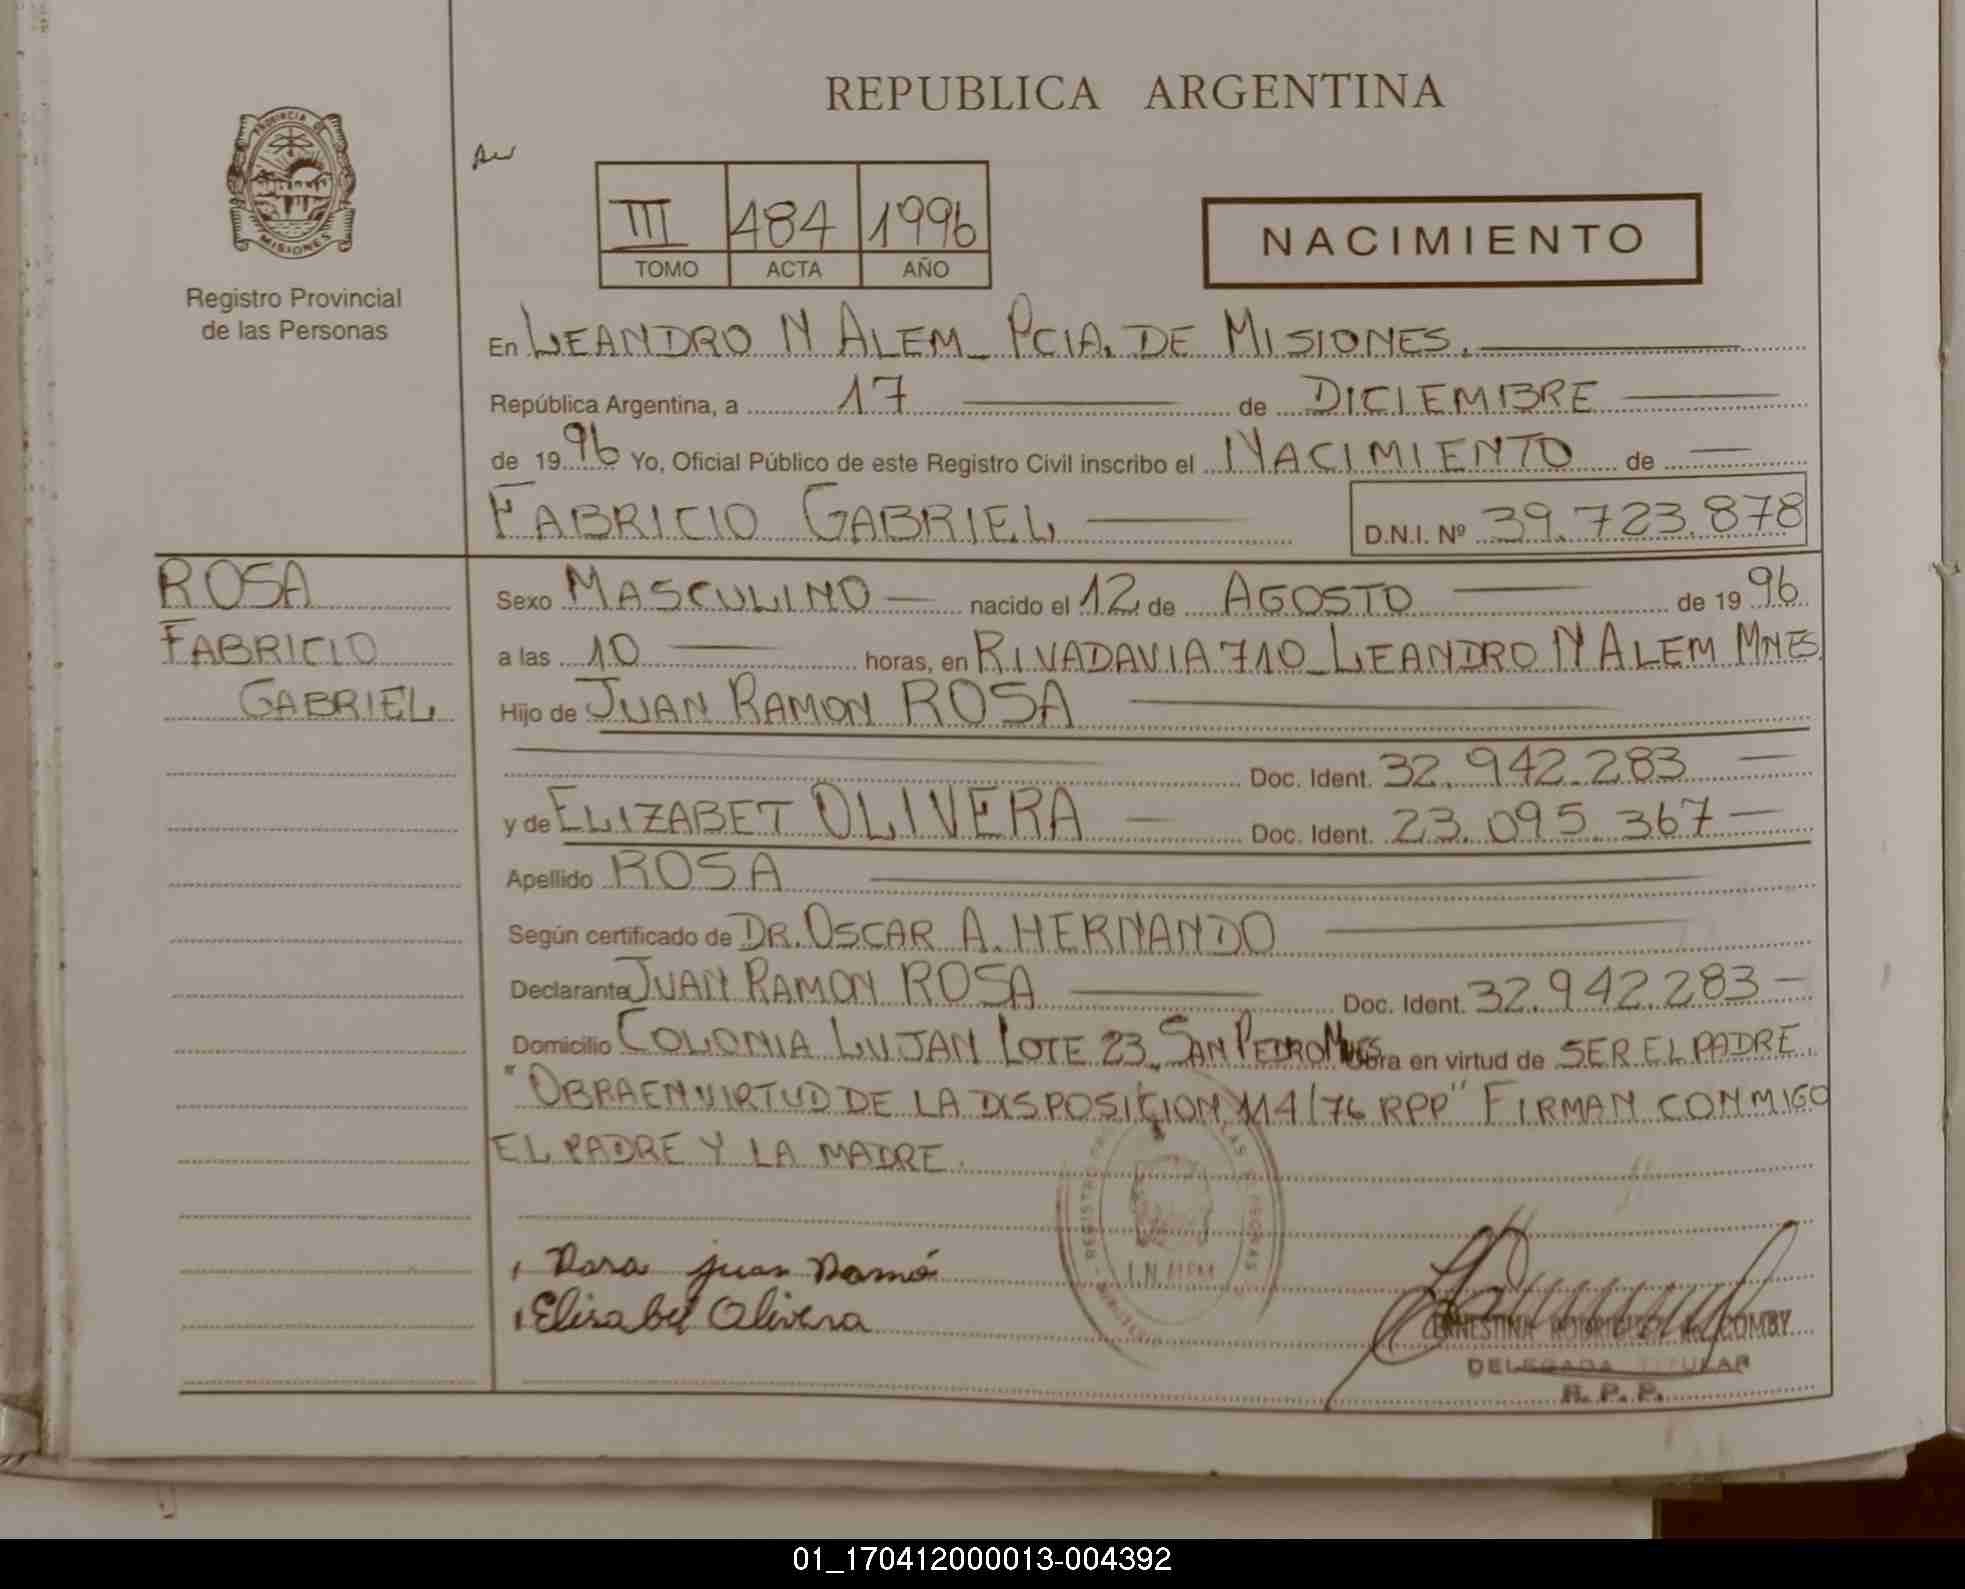 REPUBLICA ARGENTINA
PROVINCIA DE
MISIONES
Registro Provincial
de las Personas
III 484 1996
TOMO ACTA AÑO
NACIMIENTO
En LEANDRO N ALEM_ PCIA. DE MISIONES.
República Argentina, a 17 de DICIEMBRE
de 1996 Yo, Oficial Público de este Registro Civil inscribo el NACIMIENTO de
FABRICIO GABRIEL D.N.I. Nº 39.723.878
ROSA
FABRICIO
GABRIEL
Sexo MASCULINO nacido el 12 de AGOSTO de 1996
a las 10 horas, en RIVADAVIA 710_LEANDRO N ALEM MNES
Hijo de JUAN RAMON ROSA
Doc. Ident. 32.942.283
y de ELIZABET OLIVERA Doc. Ident. 23.095.367
Apellido ROSA
Según certificado de DR. OSCAR A. HERNANDO
Declarante JUAN RAMON ROSA Doc. Ident. 32.942.283
Domicilio COLONIA LUJAN LOTE 23. SAN PEDRO MNES Obra en virtud de SER EL PADRE.
"OBRA EN VIRTUD DE LA DISPOSICION 114/76 RPP" FIRMAN CONMIGO
EL PADRE Y LA MADRE.
Rosa Juan Ramó
Elisabet Olivera
ERNESTINA RODRIGUEZ COMBY
DELEGADA TITULAR
R. P. P.
01_170412000013-004392